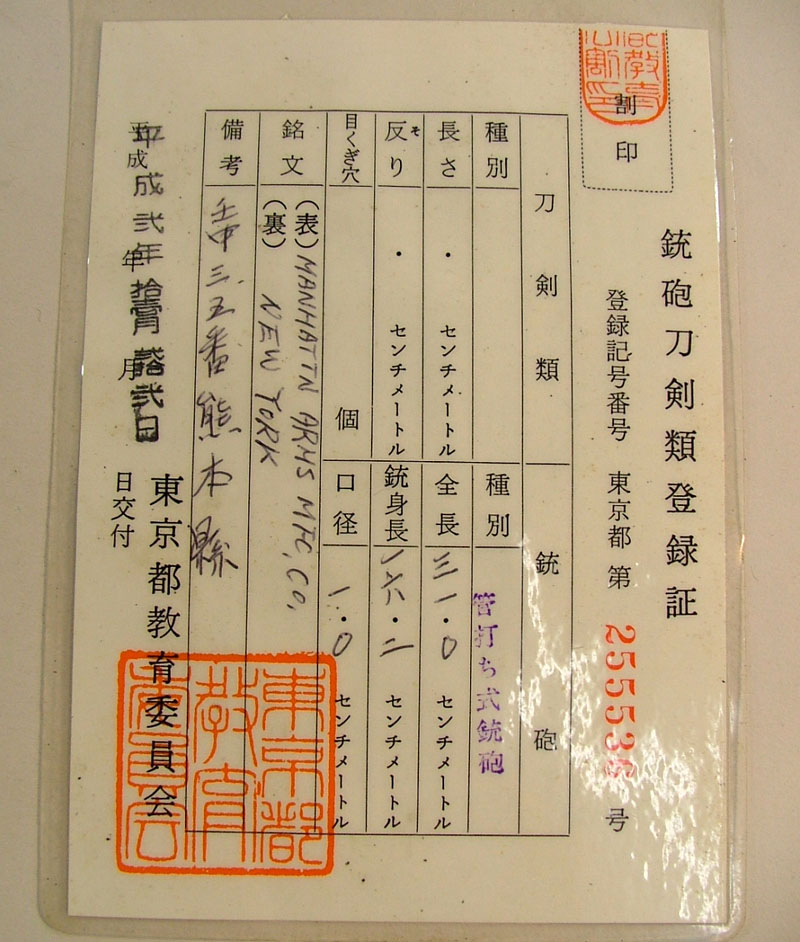 割印
銃砲刀剣類登録証
登録記号番号 東京都 第 255536 号
刀剣類 銃砲
種別
種別 管打ち式銃砲
長さ ・ センチメートル
全長 三一・0 センチメートル
反り そ ・ センチメートル
銃身長 一六・二 センチメートル
目くぎ穴 個
口径 一・0 センチメートル
銘文 (表) MANHATTN ARMS MFC, CO,
(裏) NEW YORK
備考 壬申三五番熊本縣
平成弐年拾壹月 弐日
日交付
東京都教育委員会
東京都教育委員会